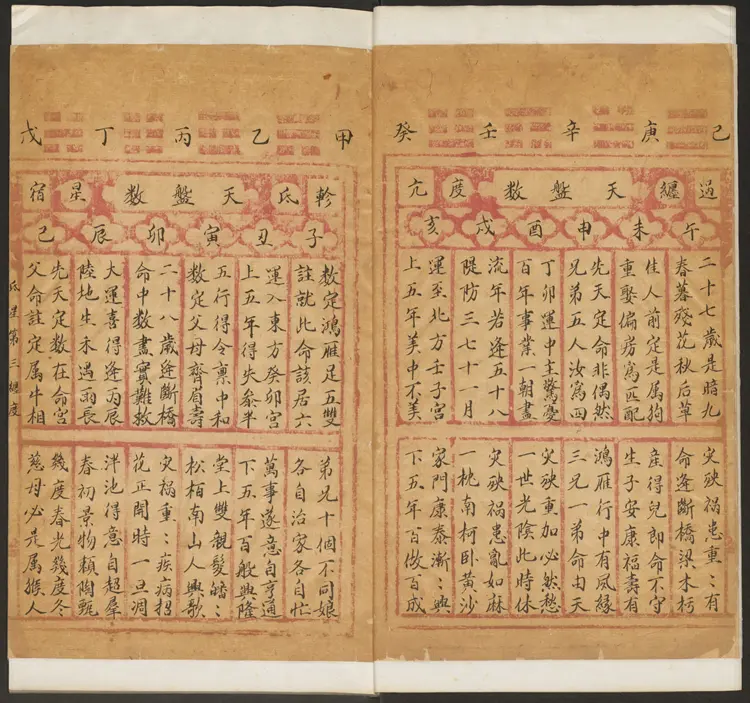 己庚辛壬癸
過纏天盤數度亢
午未申酉戌亥
二十七歲是暗九
春暮殘花秋后草
佳人前定是属狗
重娶偏房寫匹配
先天定命非偶然
兄弟五人汝寫四
丁卯運中主驚憂
百年事業一朝盡
流年若逢五十八
隄防三七十一月
運至北方壬子宮
上五年美中不美
灾殃禍患重〻有
命逢斷橋梁木朽
産得兒即命不守
生子安康福壽有
鴻雁行中有風縁
三兄一弟命由天
灾殃重加必然愁
一世光陰此時休
灾殃禍患亂如麻
一桃南柯卧黄沙
家門康泰漸〻興
下五年百做百成
甲乙丙丁戊
軫氐天盤數星宿
子丑寅卯辰巳
數定鴻雁足五雙
註就此命該居六
運入東方癸卯宮
上五年得失叅半
五行得令禀中和
數定父母齊眉壽
二十八歲逢斷橋
命中數盡實難救
大運喜得逢丙辰
陸地生禾遇雨長
先天定數在命宮
父命註定属牛相
弟兄十個不同娘
各自治家各自忙
萬事遂意自亨通
下五年百般興隆
堂上雙親髮皤〻
松栢南山人興歌
灾禍重〻疾病招
花正開時一旦凋
泮池得意自超羣
春初景物頼陶甄
幾度春光幾度冬
慈母必是属猴人
氐星第三纏度